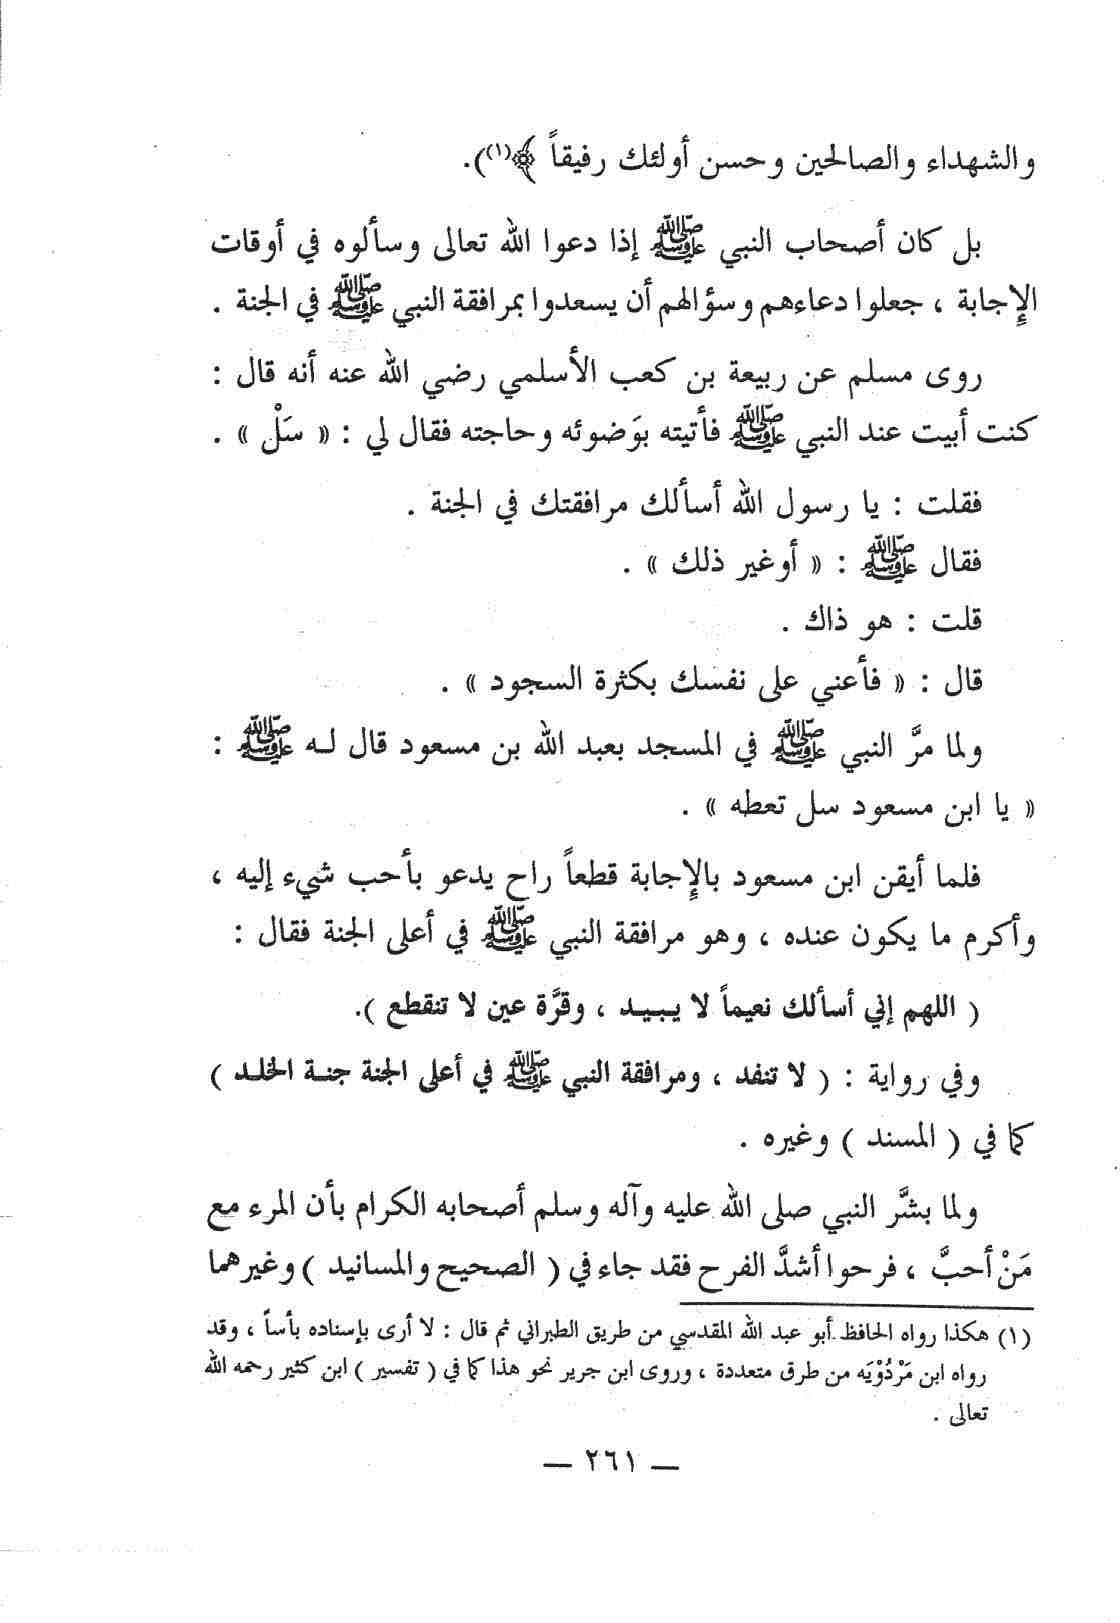 والشهداء والصالحين وحسن أولئك رفيقاً ﴾(١)).
بل كان أصحاب النبي ﷺ إذا دعوا الله تعالى وسألوه في أوقات
الإِجابة ، جعلوا دعاءهم وسؤالهم أن يسعدوا بمرافقة النبي ﷺ في الجنة .
روى مسلم عن ربيعة بن كعب الأسلمي رضي الله عنه أنه قال :
كنت أبيت عند النبي ﷺ فأتيته بوَضوئه وحاجته فقال لي : « سَلْ » .
فقلت : يا رسول الله أسألك مرافقتك في الجنة .
فقال ﷺ : « أوغير ذلك » .
قلت : هو ذاك .
قال : « فأعني على نفسك بكثرة السجود » .
ولما مرَّ النبي ﷺ في المسجد بعبد الله بن مسعود قال لـه ﷺ :
« يا ابن مسعود سل تعطه » .
فلما أيقن ابن مسعود بالإِجابة قطعاً راح يدعو بأحب شيء إليه ،
وأكرم ما يكون عنده ، وهو مرافقة النبي ﷺ في أعلى الجنة فقال :
( اللهم إني أسألك نعيماً لا يـبيـد ، وقرَّة عين لا تنقطع ).
وفي رواية : ( لا تنفد ، ومرافقة النبي ﷺ في أعلى الجنة جنـة الخلـد )
كما في ( المسند ) وغيره .
ولما بشَّر النبي صلى الله عليه وآله وسلم أصحابه الكرام بأن المرء مع
مَنْ أحبَّ ، فرحوا أشدَّ الفرح فقد جاء في ( الصحيح والمسانيد ) وغيرهما
(١) هكذا رواه الحافظ أبو عبد الله المقدسي من طريق الطبراني ثم قال : لا أرى بإسناده بأساً ، وقد
رواه ابن مَرْدُوْيَه من طرق متعددة ، وروى ابن جرير نحو هذا كما في ( تفسير ) ابن كثير رحمه الله
تعالى .
— ٢٦١ —